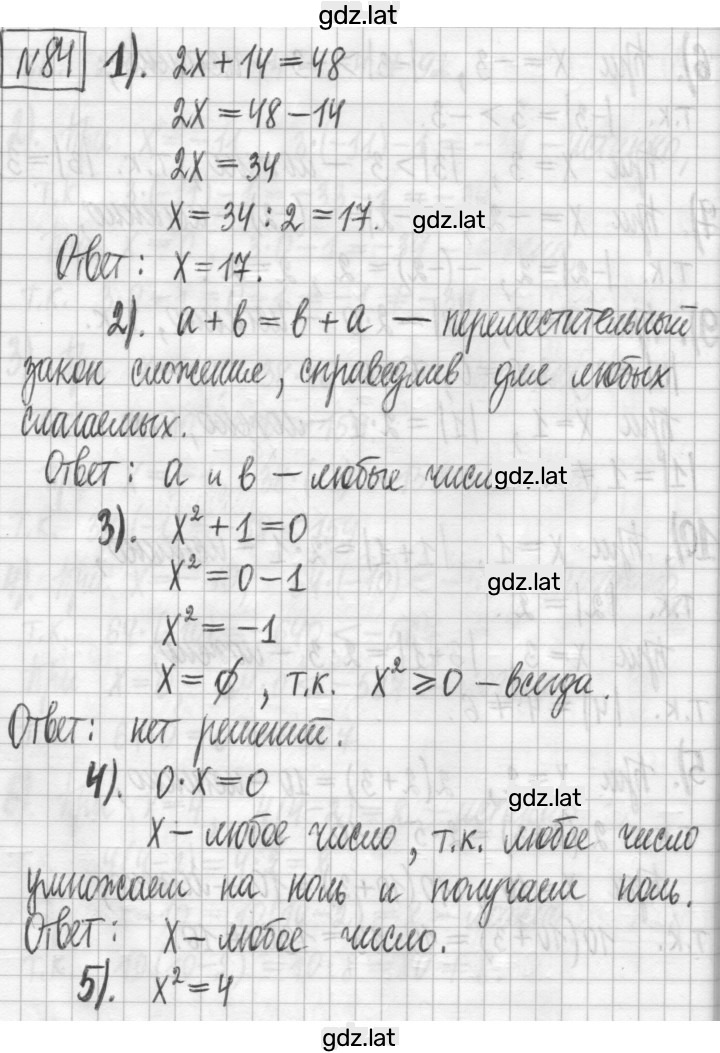 gdz.lat
№84 1). 2x + 14 = 48
2x = 48 - 14
2x = 34
x = 34 : 2 = 17.
gdz.lat
Ответ: x = 17.
2). a + в = в + a — переместительный
закон сложение, справедлив для любых
слагаемых.
Ответ: a и в — любые числа. gdz.lat
3). x² + 1 = 0
x² = 0 - 1
gdz.lat
x² = -1
x = ∅, т.к. x² ⩾ 0 - всегда.
Ответ: нет решений.
4). 0 · x = 0
gdz.lat
x - любое число, т.к. любое число
умножаем на ноль и получаем ноль.
Ответ: x - любое число.
5). x² = 4
gdz.lat